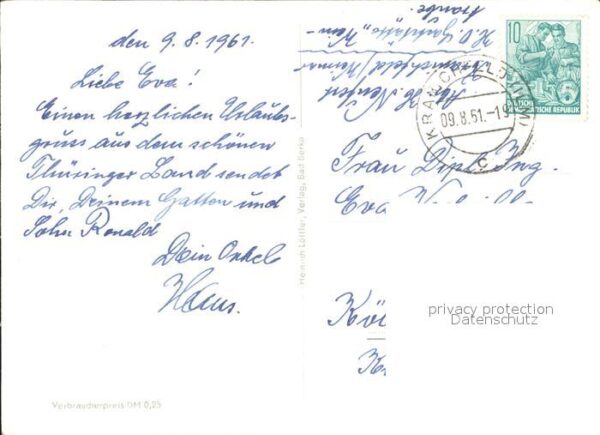 den 9. 8. 1961.
Liebe Eva!
Einen herzlichen Urlaubs-
gruss aus dem schönen
Thüringer Land sendet
Dir, Deinem Gatten und
Sohn Ronald
Dein Onkel
Hans.
Verbraucherpreis DM 0,25
Heinrich Löffler, Verlag, Bad Berka
H.O. Gaststätte „Wein-
traube"
Kranichfeld/
10
DEUTSCHE DEMOKRATISCHE REPUBLIK
KRANICHFELD (ILM)
09.8.61.-19
c
Frau Dipl. Ing.
Eva
Kö
privacy protection
Datenschutz